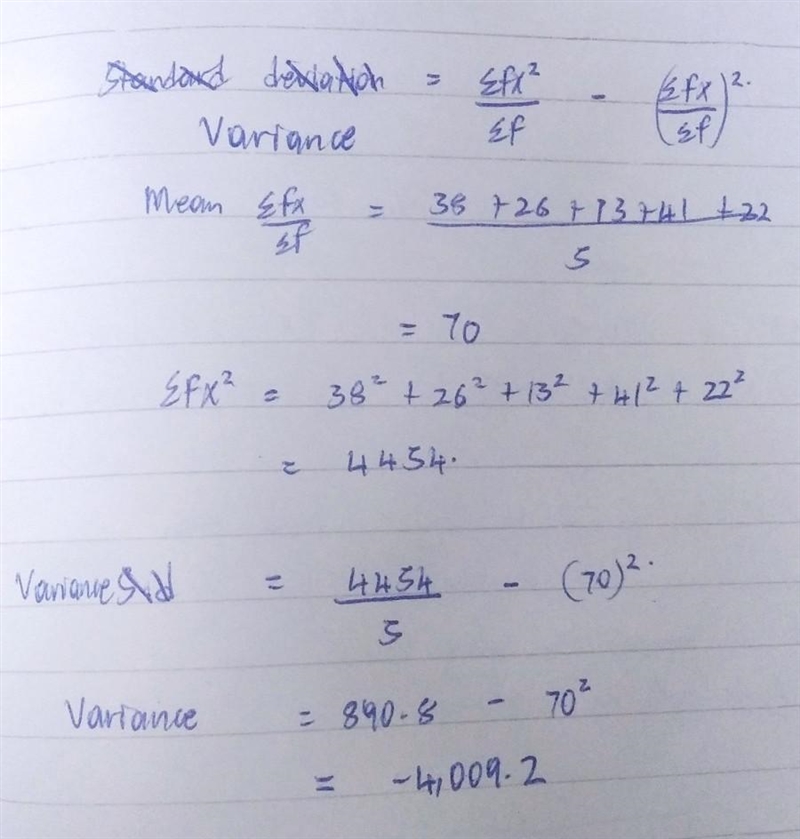 Standard deviation = Σfx²/Σf - (Σfx/Σf)².
Variance
Mean Σfx/Σf = 38 + 26 + 13 + 41 + 22 / 5
= 70
Σfx² = 38² + 26² + 13² + 41² + 22²
= 4454.
Variance S.d = 4454/5 - (70)².
Variance = 890.8 - 70²
= -4,009.2